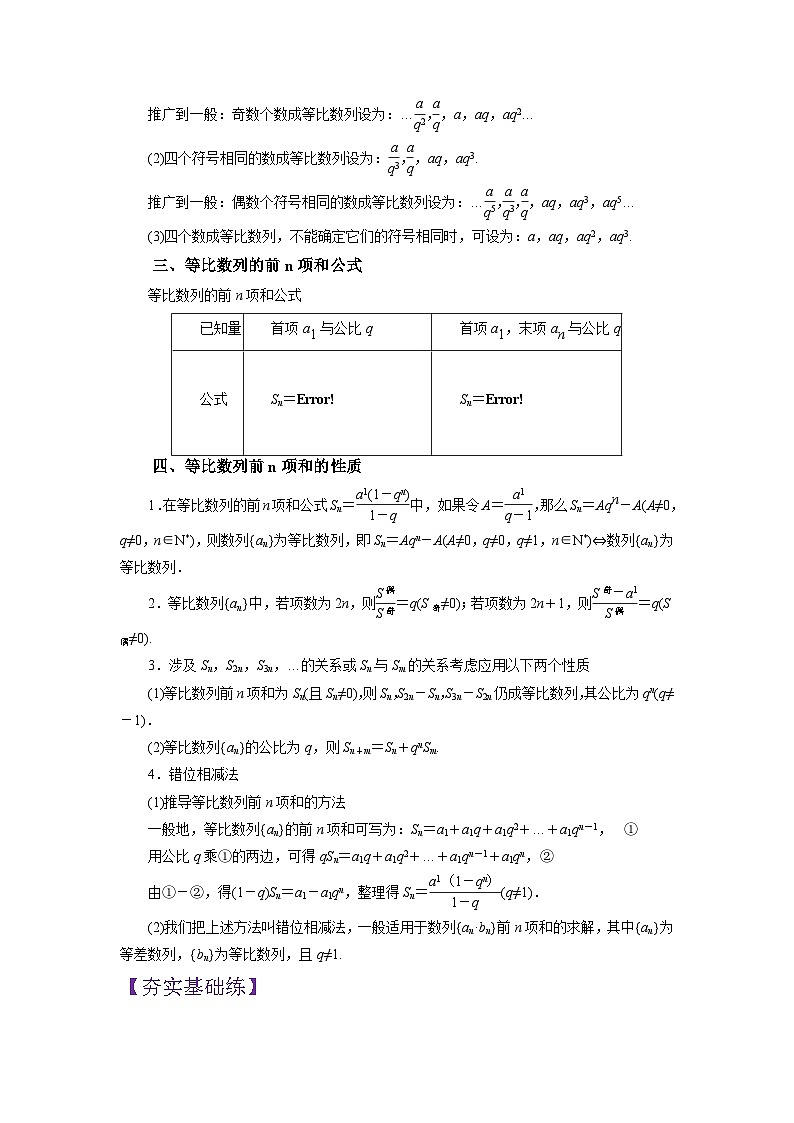 推广到一般:奇数个数成等比数列设为:…a/q²,a/q,a,aq,aq2…
(2)四个符号相同的数成等比数列设为:a/q³,a/q,aq,aq3.
推广到一般:偶数个符号相同的数成等比数列设为:…a/q5,a/q3,a/q,aq,aq3,aq5…
(3)四个数成等比数列,不能确定它们的符号相同时,可设为:a,aq,aq2,aq3.
三、等比数列的前 n 项和公式
等比数列的前 n 项和公式
已知量 首项 a1 与公比 q 首项 a1,末项 an 与公比 q
公式 Sn=Error! Sn=Error!
四、等比数列前 n 项和的性质
1.在等比数列的前 n 项和公式 Sn=a1(1-qn)/1-q中,如果令 A=a1/q-1,那么 Sn=Aqn-A(A≠0,
q≠0,n∈N*),则数列{an}为等比数列,即 Sn=Aqn-A(A≠0,q≠0,q≠1,n∈N*)⇔数列{an}为
等比数列.
2.等比数列{an}中,若项数为 2n,则S偶/S奇=q(S奇≠0);若项数为 2n+1,则S奇-a1/S偶=q(S
偶≠0).
3.涉及 Sn,S2n,S3n,…的关系或 Sn 与 Sm 的关系考虑应用以下两个性质
(1)等比数列前 n 项和为 Sn(且 Sn≠0),则 Sn,S2n-Sn,S3n-S2n 仍成等比数列,其公比为 qn(q≠
-1).
(2)等比数列{an}的公比为 q,则 Sn+m=Sn+qnSm.
4.错位相减法
(1)推导等比数列前 n 项和的方法
一般地,等比数列{an}的前 n 项和可写为:Sn=a1+a1q+a1q2+…+a1qn-1, ①
用公比 q 乘①的两边,可得 qSn=a1q+a1q2+…+a1qn-1+a1qn,②
由①-②,得(1-q)Sn=a1-a1qn,整理得 Sn=a1(1-qn)/1-q(q≠1).
(2)我们把上述方法叫错位相减法,一般适用于数列{an·bn}前 n 项和的求解,其中{an}为
等差数列,{bn}为等比数列,且 q≠1.
【夯实基础练】